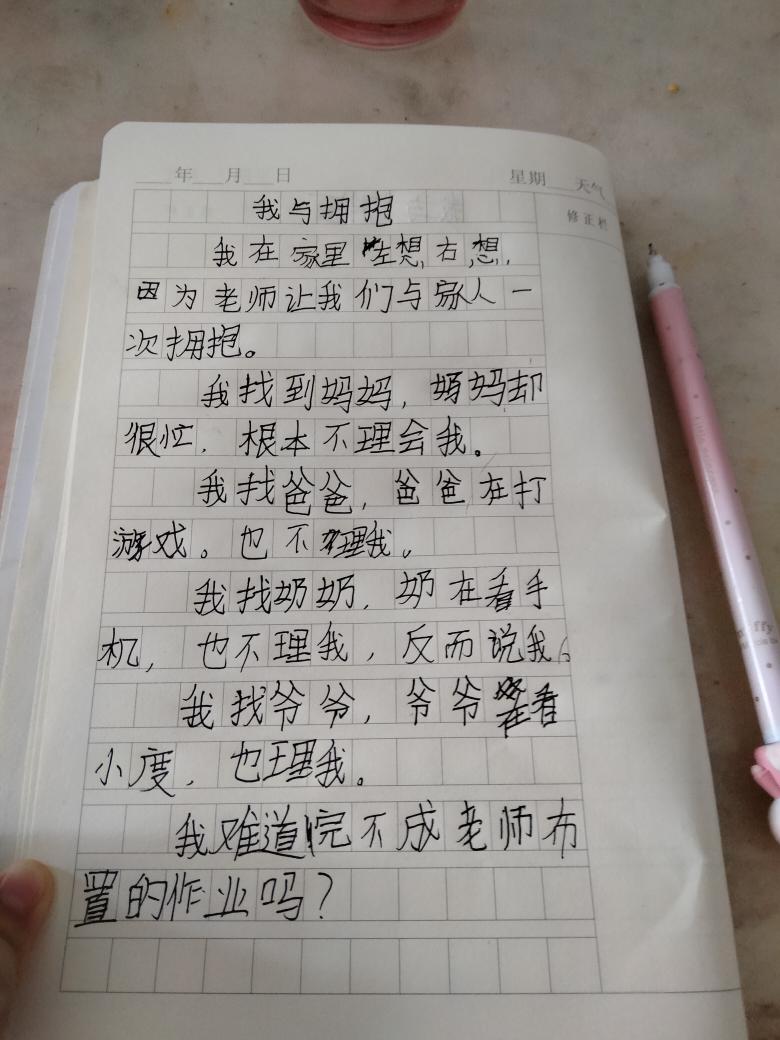 年 月 日 星期 天气
修正栏
我与拥抱
我在家里左想,右想,
因为老师让我们与家人一
次拥抱。
我找到妈妈，妈妈却
很忙，根本不理会我。
我找爸爸，爸爸在打
游戏。也不理我。
我找奶奶，奶在看手
机，也不理我，反而说我。
我找爷爷，爷爷在看
小度，也理我。
我难道完不成老师布
置的作业吗？